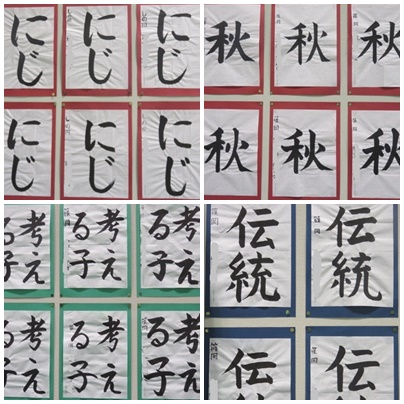 にじ
にじ
にじ
にじ
にじ
にじ
秋
秋
秋
秋
秋
秋
考え
る子
考え
る子
考え
る子
考え
る子
考え
る子
考え
る子
伝統
伝統
伝
伝